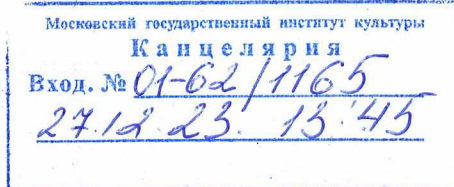 Московский государственный институт культуры
Канцелярия
Вход. № 01-62/1165
27.12.23. 15:45